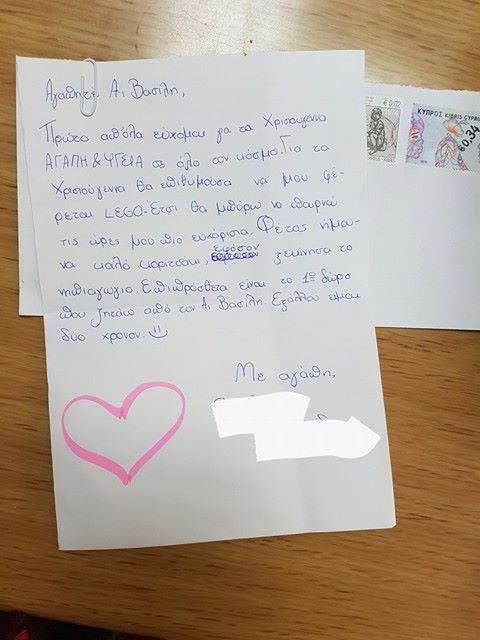 Αγαπητέ Αι Βασίλη,
Πρώτα απόλα εύχομαι για τα Χριστούγεννα
ΑΓΑΠΗ & ΥΓΕΙΑ σε όλο τον κόσμο. Για τα
Χριστούγεννα θα επιθυμούσα να μου φέ-
ρεται LEGO. Έτσι θα μπορώ να παιρνώ
τις ώρες μου πιο ευχάριστα. Φέτος ήμου-
να καλό κοριτσάκι, εφόσον ξεκίνησα το
νηπιαγωγιο. Επιπρόσθετα είναι το 1ο δώρο
που ζητάω από τον Αι Βασίλη. Εξάλλου είμαι
δύο χρονον. :)
Με αγάπη,
€ 0,02
ΚΥΠΡΟΣ KIBRIS CYPRUS
€0,34